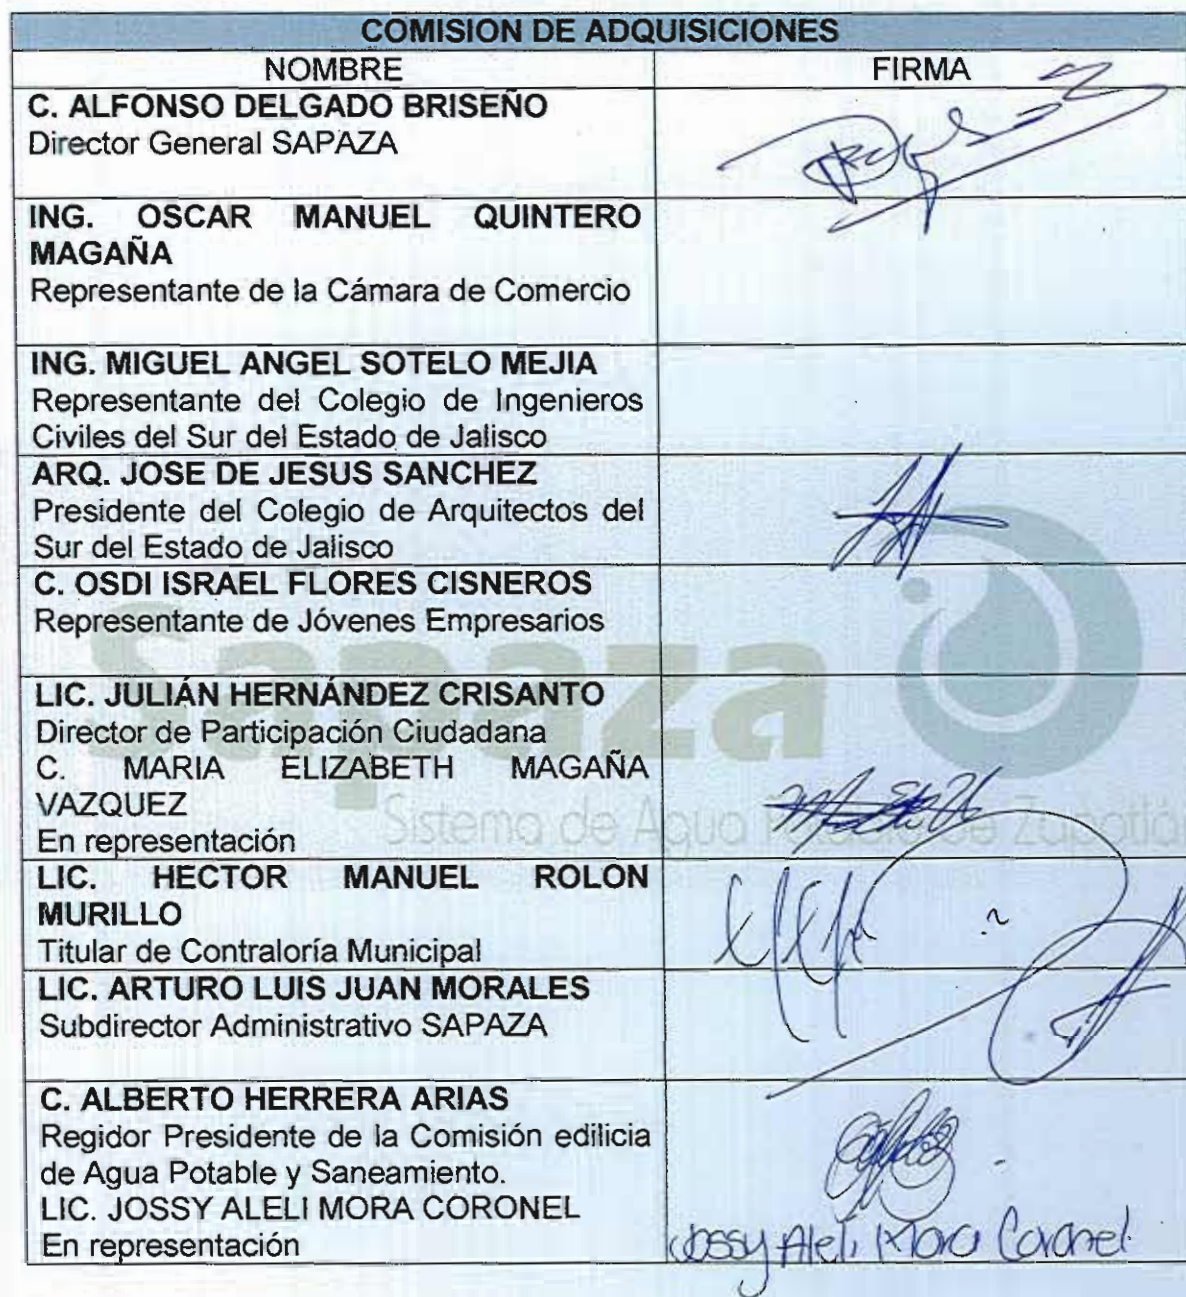 COMISION DE ADQUISICIONES
NOMBRE FIRMA
C. ALFONSO DELGADO BRISEÑO
Director General SAPAZA
ING. OSCAR MANUEL QUINTERO
MAGAÑA
Representante de la Cámara de Comercio
ING. MIGUEL ANGEL SOTELO MEJIA
Representante del Colegio de Ingenieros
Civiles del Sur del Estado de Jalisco
ARQ. JOSE DE JESUS SANCHEZ
Presidente del Colegio de Arquitectos del
Sur del Estado de Jalisco
C. OSDI ISRAEL FLORES CISNEROS
Representante de Jóvenes Empresarios
Sapaza
LIC. JULIÁN HERNÁNDEZ CRISANTO
Director de Participación Ciudadana
C. MARIA ELIZABETH MAGAÑA
VAZQUEZ
En representación
Sistema de Agua Potable de Zapotlán
LIC. HECTOR MANUEL ROLON
MURILLO
Titular de Contraloría Municipal
LIC. ARTURO LUIS JUAN MORALES
Subdirector Administrativo SAPAZA
C. ALBERTO HERRERA ARIAS
Regidor Presidente de la Comisión edilicia
de Agua Potable y Saneamiento.
LIC. JOSSY ALELI MORA CORONEL
En representación
Jossy Aleli Mora Coronel